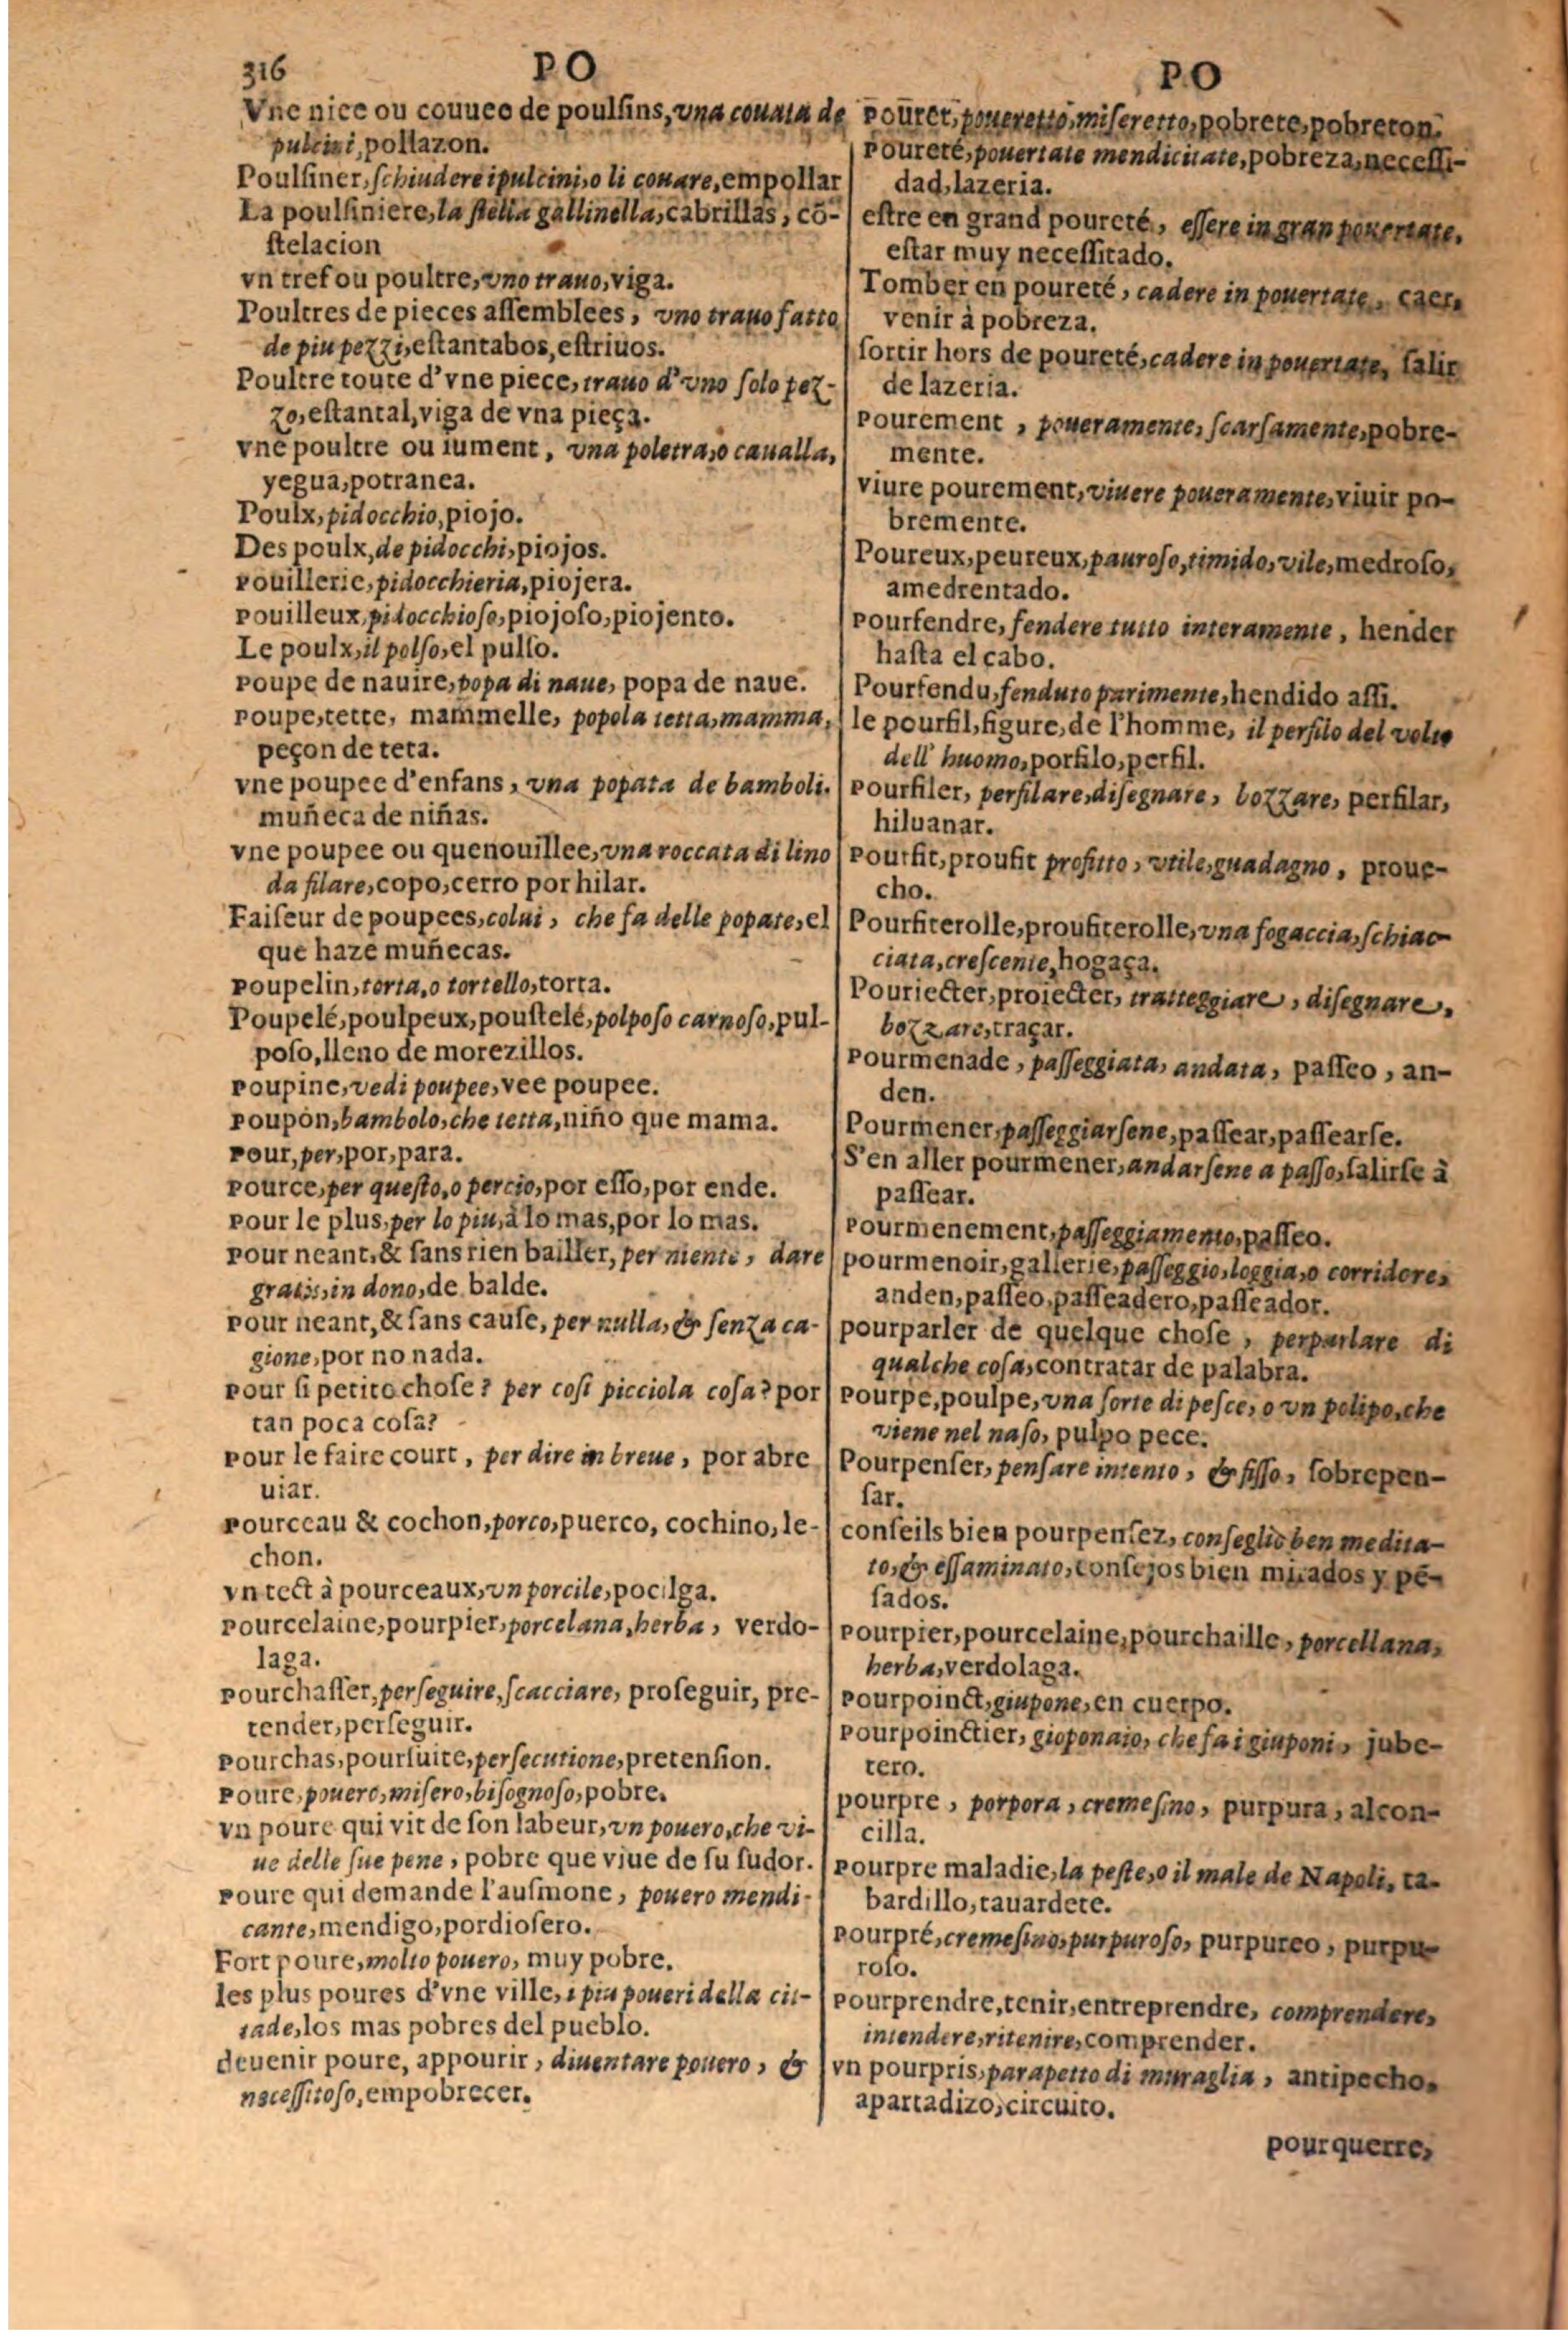 316
PO
Vne nice ou couuee de poulſins, vna couata de
pulcini, pollazon.
Poulſiner, ſchiudere i pulcini, o li couare, empollar
La poulſiniere, la ſtella gallinella, cabrillas, cō-
ſtelacion
vn tref ou poultre, vno trauo, viga.
Poultres de pieces aſſemblees, vno trauo fatto
de piu pezzi, eſtantabos, eſtriuos.
Poultre toute d'vne piece, trauo d'vno ſolo pez-
zo, eſtantal, viga de vna pieça.
vne poultre ou iument, vna poletra, o caualla,
yegua, potranea.
Poulx, pidocchio, piojo.
Des poulx, de pidocchi, piojos.
Pouillerie, pidocchieria, piojera.
Pouilleux, pidocchioſo, piojoſo, piojento.
Le poulx, il polſo, el pulſo.
Poupe de nauire, popa di naue, popa de naue.
Poupe, tette, mammelle, popola tetta, mamma,
peçon de teta.
vne poupee d'enfans, vna popata de bamboli.
muñeca de niñas.
vne poupee ou quenouillee, vna roccata di lino
da filare, copo, cerro por hilar.
Faiſeur de poupees, colui, che fa delle popate, el
que haze muñecas.
Poupelin, torta, o tortello, torta.
Poupelé, poulpeux, pouſtelé, polpoſo carnoſo, pul-
poſo, lleno de morezillos.
Poupine, vedi poupee, vee poupee.
Poupon, bambolo, che tetta, niño que mama.
Pour, per, por, para.
Pource, per queſto, o percio, por eſſo, por ende.
Pour le plus, per lo piu, à lo mas, por lo mas.
Pour neant, & ſans rien bailler, per niente, dare
gratis, in dono, de balde.
Pour neant, & ſans cauſe, per nulla, & ſenza ca-
gione, por no nada.
Pour ſi petite choſe? per coſi picciola coſa? por
tan poca coſa?
Pour le faire court, per dire in breue, por abre
uiar.
Pourceau & cochon, porco, puerco, cochino, le-
chon.
vn tect à pourceaux, vn porcile, pocilga.
Pourcelaine, pourpier, porcelana, herba, verdo-
laga.
Pourchaſſer, perſeguire, ſcacciare, proſeguir, pre-
tender, perſeguir.
Pourchas, pourſuite, perſecutione, pretenſion.
Poure, pouero, miſero, biſognoſo, pobre.
vn poure qui vit de ſon labeur, vn pouero, che vi-
ue delle ſue pene, pobre que viue de ſu ſudor.
Poure qui demande l'auſmone, pouero mendi-
cante, mendigo, pordioſero.
Fort poure, molto pouero, muy pobre.
les plus poures d'vne ville, i piu poueri della cit-
tade, los mas pobres del pueblo.
deuenir poure, appourir, diuentare pouero, &
neceſſitoſo, empobrecer.
PO
Pouret, poueretto, miſeretto, pobrete, pobreton.
Poureté, pouertate mendicitate, pobreza, neceſſi-
dad, lazeria.
eſtre en grand poureté, eſſere in gran pouertate,
eſtar muy neceſſitado.
Tomber en poureté, cadere in pouertate, caer,
venir à pobreza.
ſortir hors de poureté, cadere in pouertate, ſalir
de lazeria.
Pourement, poueramente, ſcarſamente, pobre-
mente.
viure pourement, viuere poueramente, viuir po-
bremente.
Poureux, peureux, pauroſo, timido, vile, medroſo,
amedrentado.
Pourfendre, fendere tutto interamente, hender
haſta el cabo.
Pourfendu, fenduto parimente, hendido aſſi.
le pourfil, figure, de l'homme, il perfilo del volto
dell' huomo, porfilo, perfil.
Pourfiler, perfilare, diſegnare, bozzare, perfilar,
hiluanar.
Pourfit, proufit profitto, vtile, guadagno, proue-
cho.
Pourfiterolle, proufiterolle, vna fogaccia, ſchiac-
ciata, creſcente, hogaça.
Pouriecter, proiecter, tratteggiare, diſegnare,
bozzare, traçar.
Pourmenade, paſſeggiata, andata, paſſeo, an-
den.
Pourmener, paſſeggiarſene, paſſear, paſſearſe.
S'en aller pourmener, andarſene a paſſo, ſalirſe à
paſſear.
Pourmenement, paſſeggiamento, paſſeo.
pourmenoir, gallerie, paſſeggio, loggia, o corridore,
anden, paſſeo, paſſeadero, paſſeador.
pourparler de quelque choſe, perparlare di
qualche coſa, contratar de palabra.
Pourpe, poulpe, vna ſorte di peſce, o vn polipo, che
viene nel naſo, pulpo pece.
Pourpenſer, penſare intento, & fiſſo, ſobrepen-
ſar.
conſeils bien pourpenſez, conſeglio ben medita-
to, & eſſaminato, conſejos bien mirados y pē-
ſados.
Pourpier, pourcelaine, pourchaille, porcellana,
herba, verdolaga.
Pourpoinct, giupone, en cuerpo.
Pourpoinctier, gioponaio, che fa i giuponi, jube-
tero.
pourpre, porpora, cremeſino, purpura, alcon-
cilla.
Pourpre maladie, la peſte, o il male de Napoli, ta-
bardillo, tauardete.
Pourpré, cremeſino, purpuroſo, purpureo, purpu-
roſo.
Pourprendre, tenir, entreprendre, comprendere,
intendere, ritenire, comprender.
vn pourpris, parapetto di muraglia, antipecho,
apartadizo, circuito.
pourquerre,